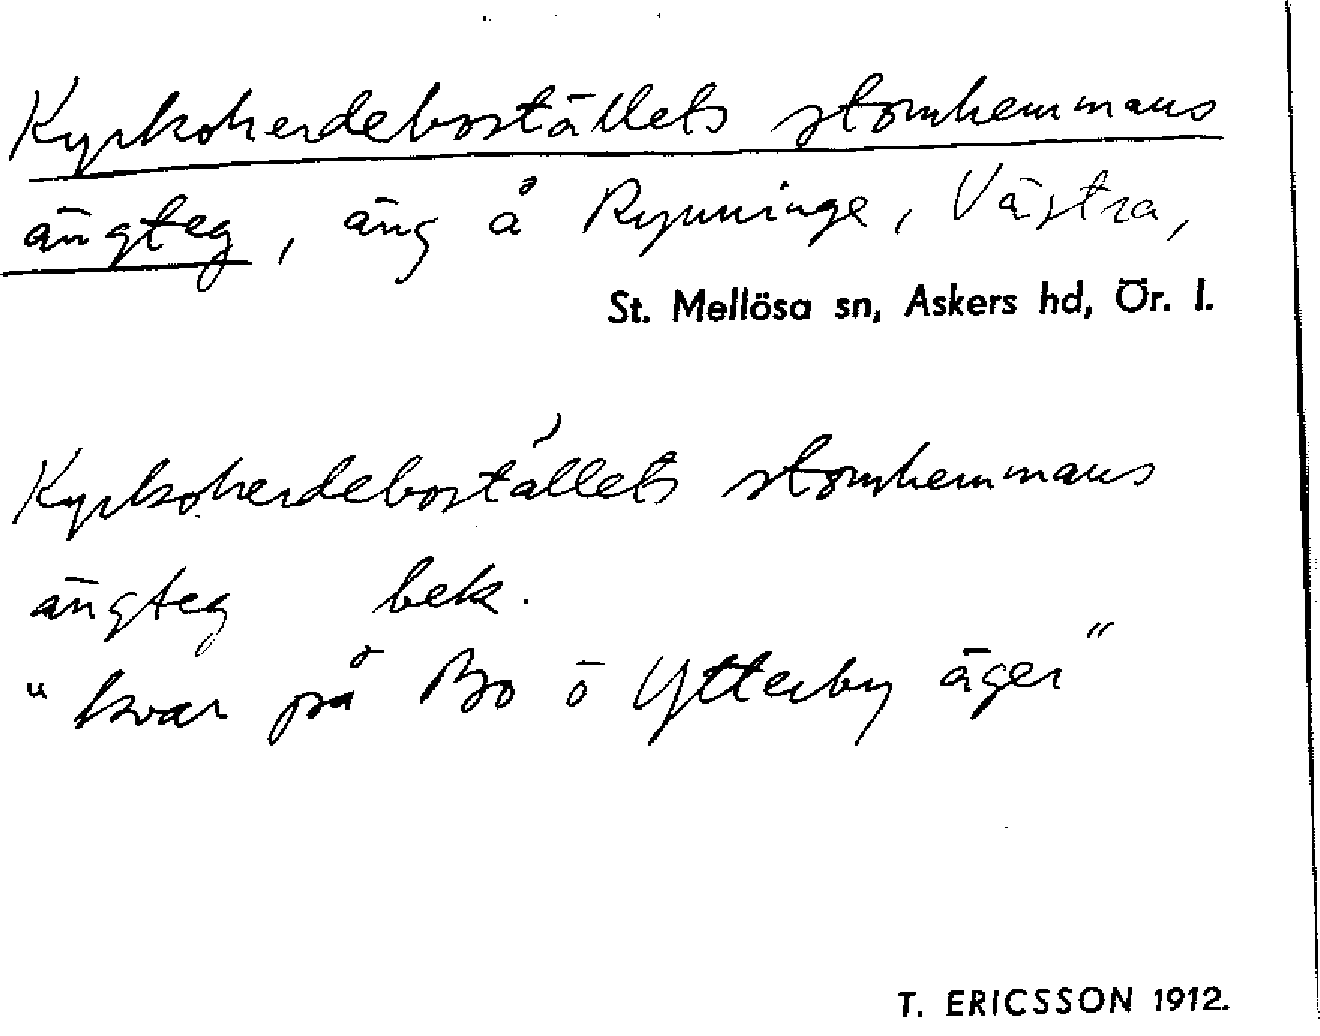 Kyrkoherdeboställets stomhemmans
ängteg, äng å Rynninge, Västra,
St. Mellösa sn, Askers hd, Ör. l.
Kyrkoherdebostállets stomhemmans
ängteg bek.
"kvar på Bo ö Ytterby äger"
T. ERICSSON 1912.